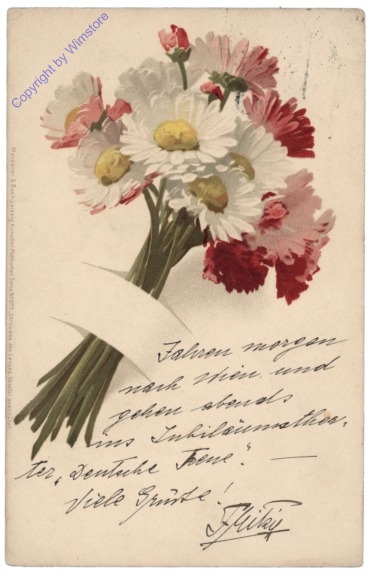 Copyright by Wimstore
Fahren morgen
nach Wien und
gehen abends
ins Jubiläumsthea-
ter, "Deutsche Treue". —
Viele Grüsse!